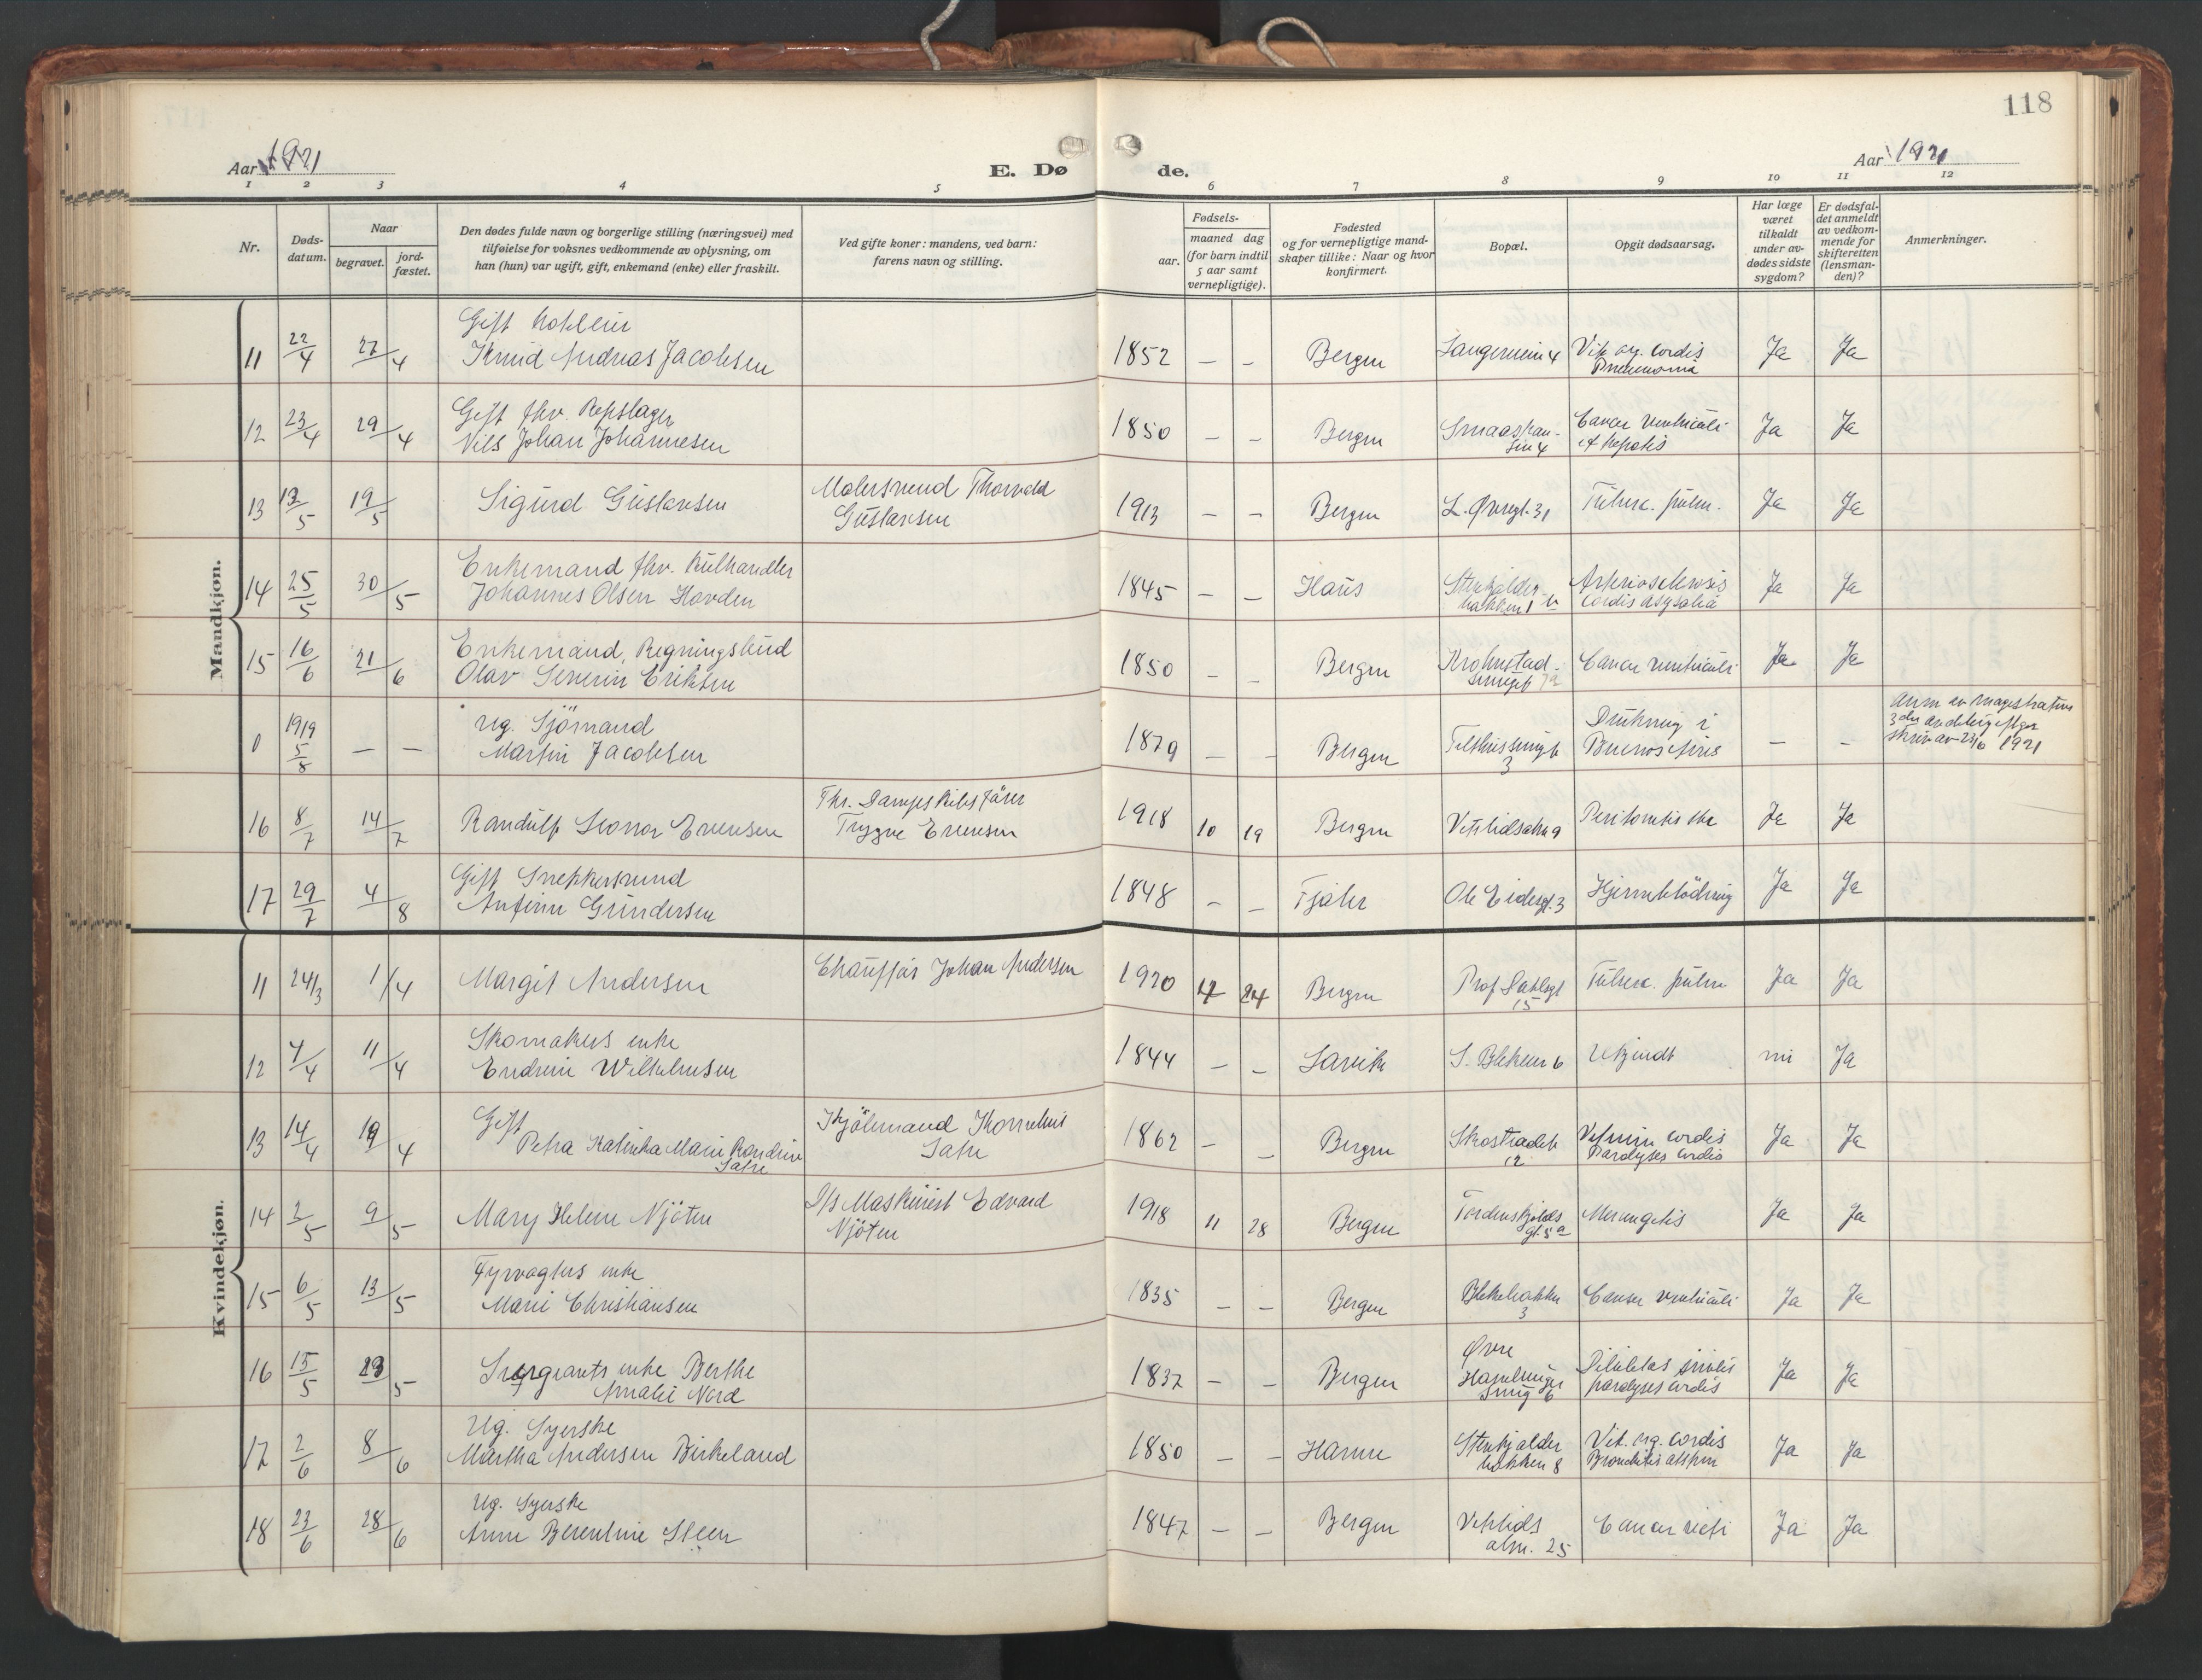 118
Aar 1921
E. Døde.
Aar 1921
1 2 3 4 5 6 7 8 9 10 11 12
Nr.
Døds-
datum.
Naar
begravet.
jord-
fæstet.
Den dødes fulde navn og borgerlige stilling (næringsvei) med
tilføielse for voksnes vedkommende av oplysning, om
han (hun) var ugift, gift, enkemand (enke) eller fraskilt.
Ved gifte koner: mandens, ved barn:
farens navn og stilling.
Fødsels-
aar.
maaned dag
(for barn indtil
5 aar samt
vernepligtige).
Fødested
og for vernepligtige mand-
skaper tillike: Naar og hvor
konfirmert.
Bopæl.
Opgit dødsaarsag.
Har læge
været
tilkaldt
under av-
dødes sidste
sygdom?
Er dødsfal-
det anmeldt
av vedkom-
mende for
skifteretten
(lensman-
den)?
Anmerkninger.
Mandkjøn.
Gift
11 22/4 27/4 Knud Andreas Jacobsen 1852 — — Bergen 4 Vit. org. cordis Ja Ja
Pneumonia
Gift fhv. Repslager
12 23/4 29/4 Nils Johan Johannesen 1850 — — Bergen Cancer ventriculi Ja Ja
et hepatis
Malersvend Thorvald
13 13/5 19/5 Sigurd Gustavsen Gustavsen 1913 — — Bergen L. Øvregt. 31 Tuberc. pulm. Ja Ja
Enkemand fhv. Kulhandler
14 25/5 30/5 Johannes Olsen Hovden 1845 — — Haus Stenkjelder- Arteriosclerosis Ja Ja
bakken 1 b cordis
Enkemand, Regningsbud
15 16/6 21/6 Olav Severin Eriksen 1850 — — Bergen Krohnstad- Cancer ventriculi Ja Ja
smuget
1919 Ug. Sjömand
0 5/8 — — Martin Jacobsen 1879 — — Bergen Drukning i — —
3 Buenos Aires
1921
Dampskibsförer
16 8/7 14/7 Randulf Evensen Trygve Evensen 1918 10 19 Bergen Vetrlidsalm 9 Ja Ja
Gift Snekkersvend
17 29/7 4/8 Anfinn Gundersen 1848 — — Fjaler Ole Eidesgt. 3 Hjerneblödning Ja Ja
Kvindekjøn.
11 24/3 1/4 Margit Andersen Chauffør Johan Andersen 1920 12 24 Bergen Prof. Dahlsgt Tuberc. pulm Ja Ja
15
Skomakers enke
12 4/4 11/4 Wilhelmsen 1844 — — Lavik 6 Ukjendt nei Ja
Gift
13 14/4 19/4 Petra Katinka Marie Kornelius 1862 — — Bergen Skostrædet Vitium cordis Ja Ja
12 Paralyses cordis
D/s Maskinist Edvard
14 2/5 9/5 Mary Helene Njöten Njöten 1918 11 28 Bergen Tordenskjolds Meningitis Ja Ja
gt. 5 a
Fyrvogters enke
15 6/5 13/5 Marie Christiansen 1835 — — Bergen Blekebakken Cancer ventriculi Ja Ja
3
16 15/5 23/5 Sergeants enke Berthe 1837 — — Bergen Øvre Ja Ja
Amalie Nord smug 6 paralyses cordis
Ug. Syerske
17 2/6 8/6 Martha Andersen Birkeland 1850 — — Hamre Stenkjelder Vit. org. cordis Ja Ja
bakken 8
Ug. Syerske
18 23/6 28/6 Anne Berentine Steen 1847 — — Bergen Vetrlids Cancer Ja Ja
alm. 25